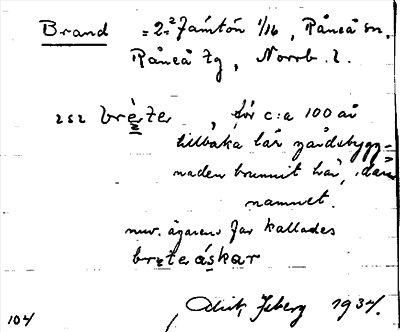 Brand = 2:2 Jämtön 1/16, Råneå sn.
Råneå tg, Norrb. l.
brèter, för c:a 100 år
tillbaka lär gårdsbygg=
naden brunnit här, därav
namnet.
nuv. ägarens far kallades
breteåskar
Isberg 1934.
104